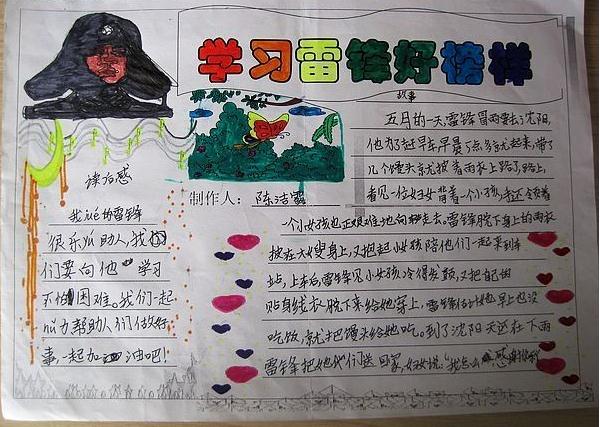 学习雷锋好榜样
故事
五月的一天,雷锋冒雨要去沈阳,
他为了赶早车早晨5点多就起来,带了
几个馒头就披着雨衣上路了,路上,
看见一位妇女背着一个小孩,手还领着
一个小女孩也正艰难地向走去。雷锋脱下身上的雨衣
披在大嫂身上,又抱起小女孩陪他们一起来到车
站,上车后,雷锋见小女孩冷得发颤,又把自己的
贴身线衣脱下来给她穿上,雷锋估计她早上也没
吃饭,就把馒头给她吃。到了沈阳天还在下雨
雷锋把她们送回家,妇女说:“我怎么感谢你
制作人:陈洁
读后感
我 的雷锋
很乐 助人,我
们要向他学习
不怕困难。我们一起
力帮助人们做好
事,一起加油吧!